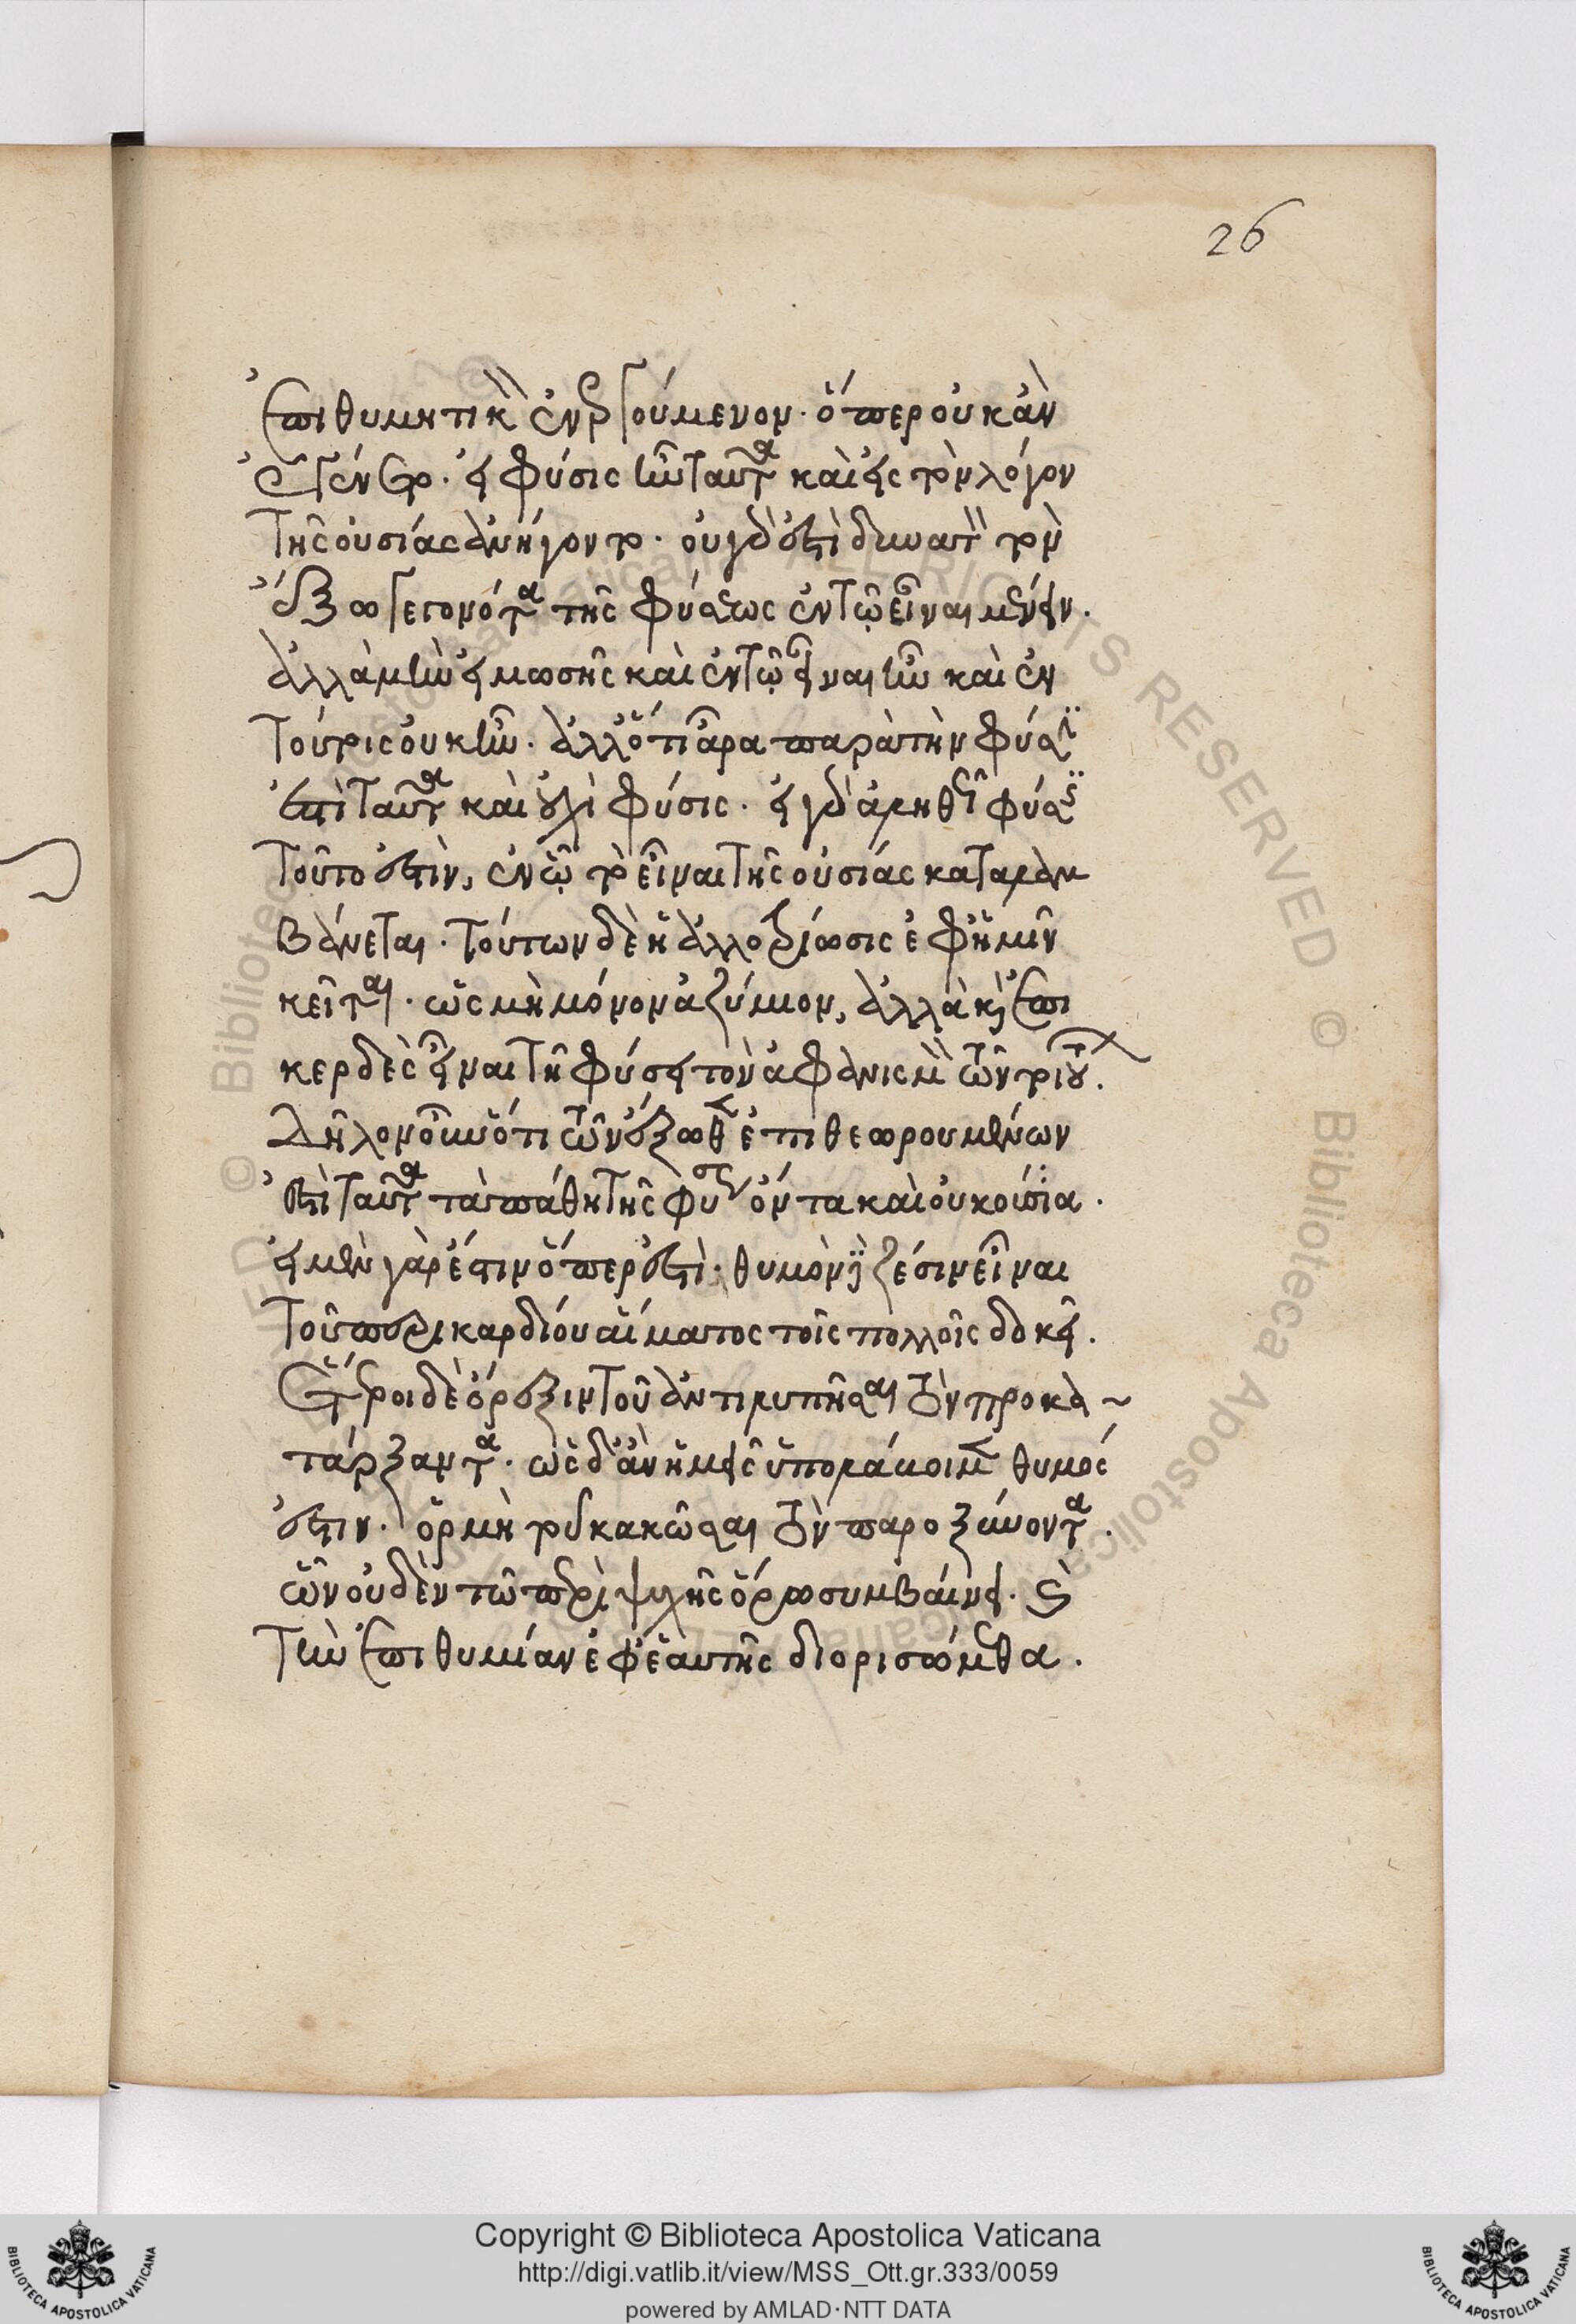 26
ἐπιθυμητικὸν ἐνεργούμενον. ὅπερ οὐκ ἂν
ἐγένετο. εἰ φύσις ἦν ταῦτα καὶ εἰς τὸν λόγον
τῆς οὐσίας ἀνήγοντο. οὐ γὰρ ἐστὶ δυνατὸν τὸν
ἔξω γεγονότα τῆς φύσεως ἐν τῷ εἶναι μένειν.
ἀλλὰ μὴν εἰ μωσῆς καὶ ἐν τῷ εἶναι ἦν καὶ ἐν
τούτοις οὐκ ἦν. ἀλλό τι ἄρα παρὰ τὴν φύσιν
ἐστὶ ταῦτα καὶ οὐχὶ φύσις. εἰ γὰρ ἀληθῶς φύσις
τοῦτο ἐστὶν, ἐν ᾧ τὸ εἶναι τῆς οὐσίας καταλαμ
βάνεται. τούτων δὲ ἡ ἀλλοτρίωσις ἐφ ἡμῖν
κεῖται. ὡς μὴ μόνον ἀζήμιον, ἀλλὰ καὶ ἐπι
κερδὲς εἶναι τῇ φύσει τὸν ἀφανισμὸν τῶν τοιούτων.
δῆλον οὖν ὅτι τῶν ἔξωθεν ἐπιθεωρουμένων
ἐστὶ ταῦτα τὰ πάθη τῆς φύσεως ὄντα καὶ οὐκ οὐσία.
ἡ μὲν γὰρ ἐστιν ὅπερ ἐστὶ. θυμὸν δὲ ζέσιν εἶναι
τοῦ περικαρδίου αἵματος τοῖς πολλοῖς δοκεῖ.
ἕτεροι δὲ ὄρεξιν τοῦ ἀντιλυπῆσαι τὸν προκα
τάρξαντα. ὡς δ' ἂν ἡμεῖς ὑπολάβοιμεν θυμός
ἐστιν. ὁρμὴ τοῦ κακῶσαι τὸν παροξύνοντα.
ὧν οὐδὲν τῷ περὶ ψυχῆς ὅρῳ συμβαίνει. καὶ
τὴν ἐπιθυμίαν ἐφ ἑαυτῆς διορισώμεθα.
Copyright © Biblioteca Apostolica Vaticana
http://digi.vatlib.it/view/MSS_Ott.gr.333/0059
powered by AMLAD·NTT DATA